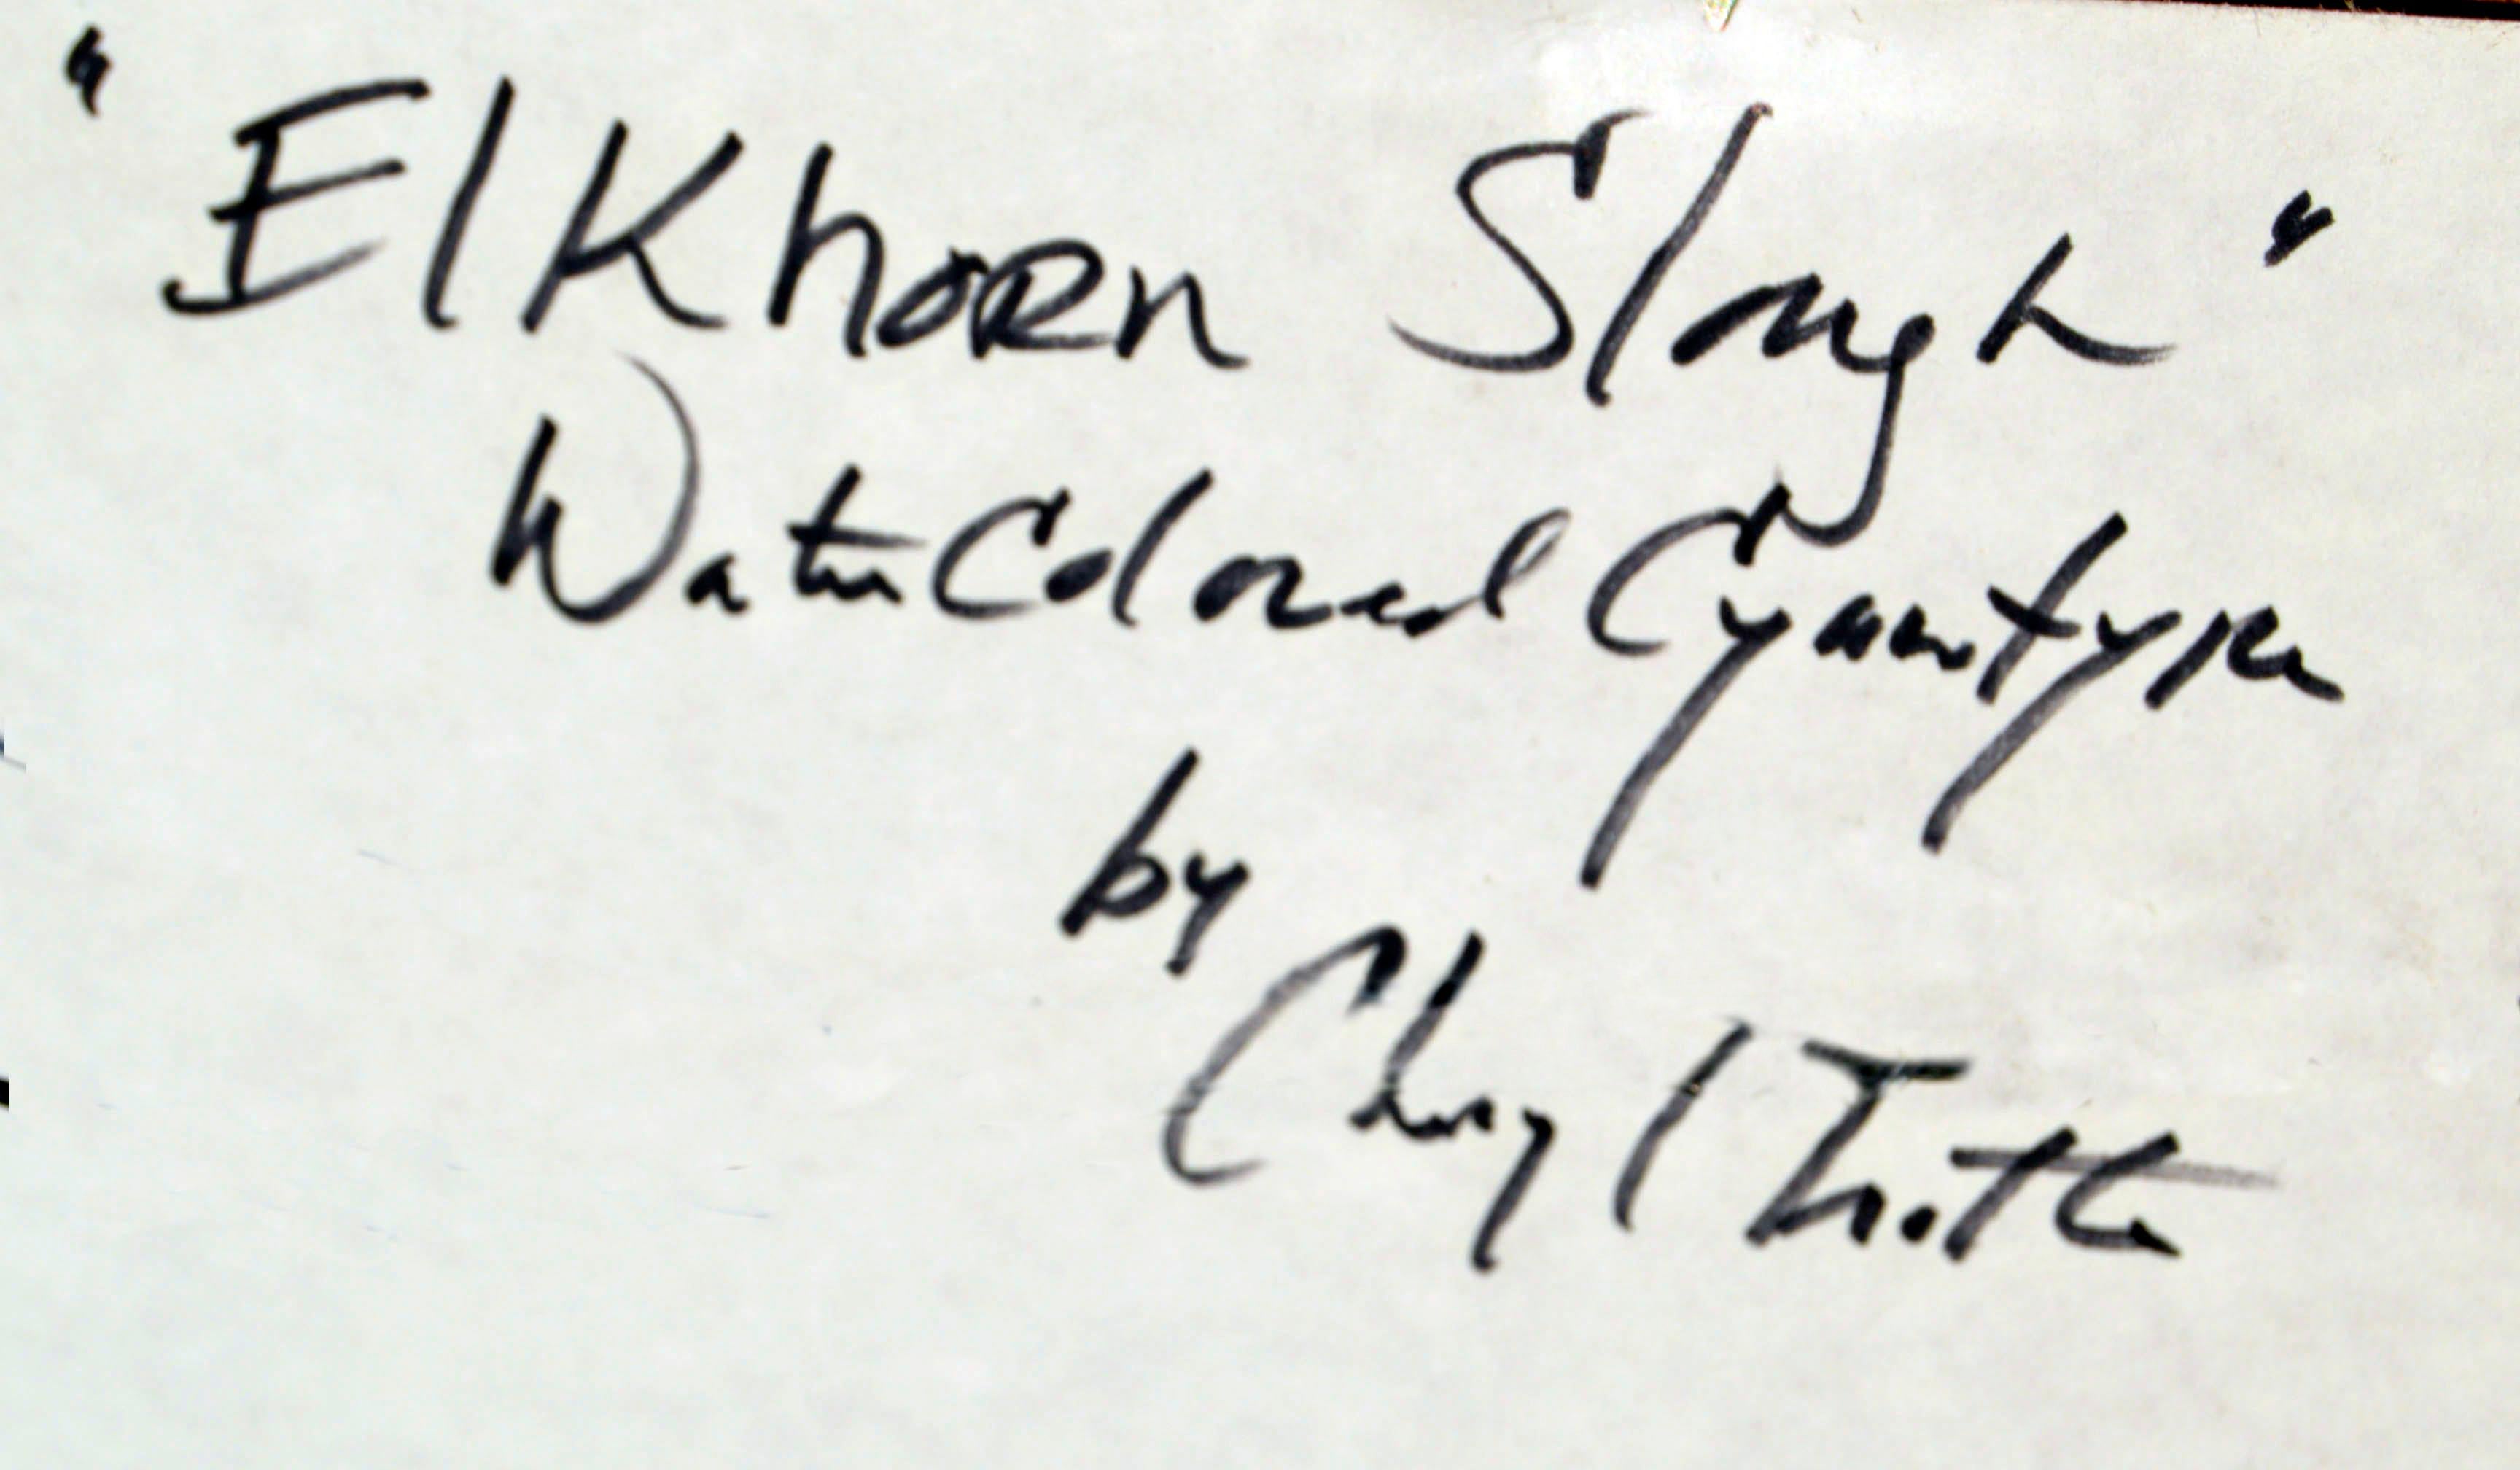 "Elkhorn Slough"
WaterColored Cyanotype
by
Cheryl